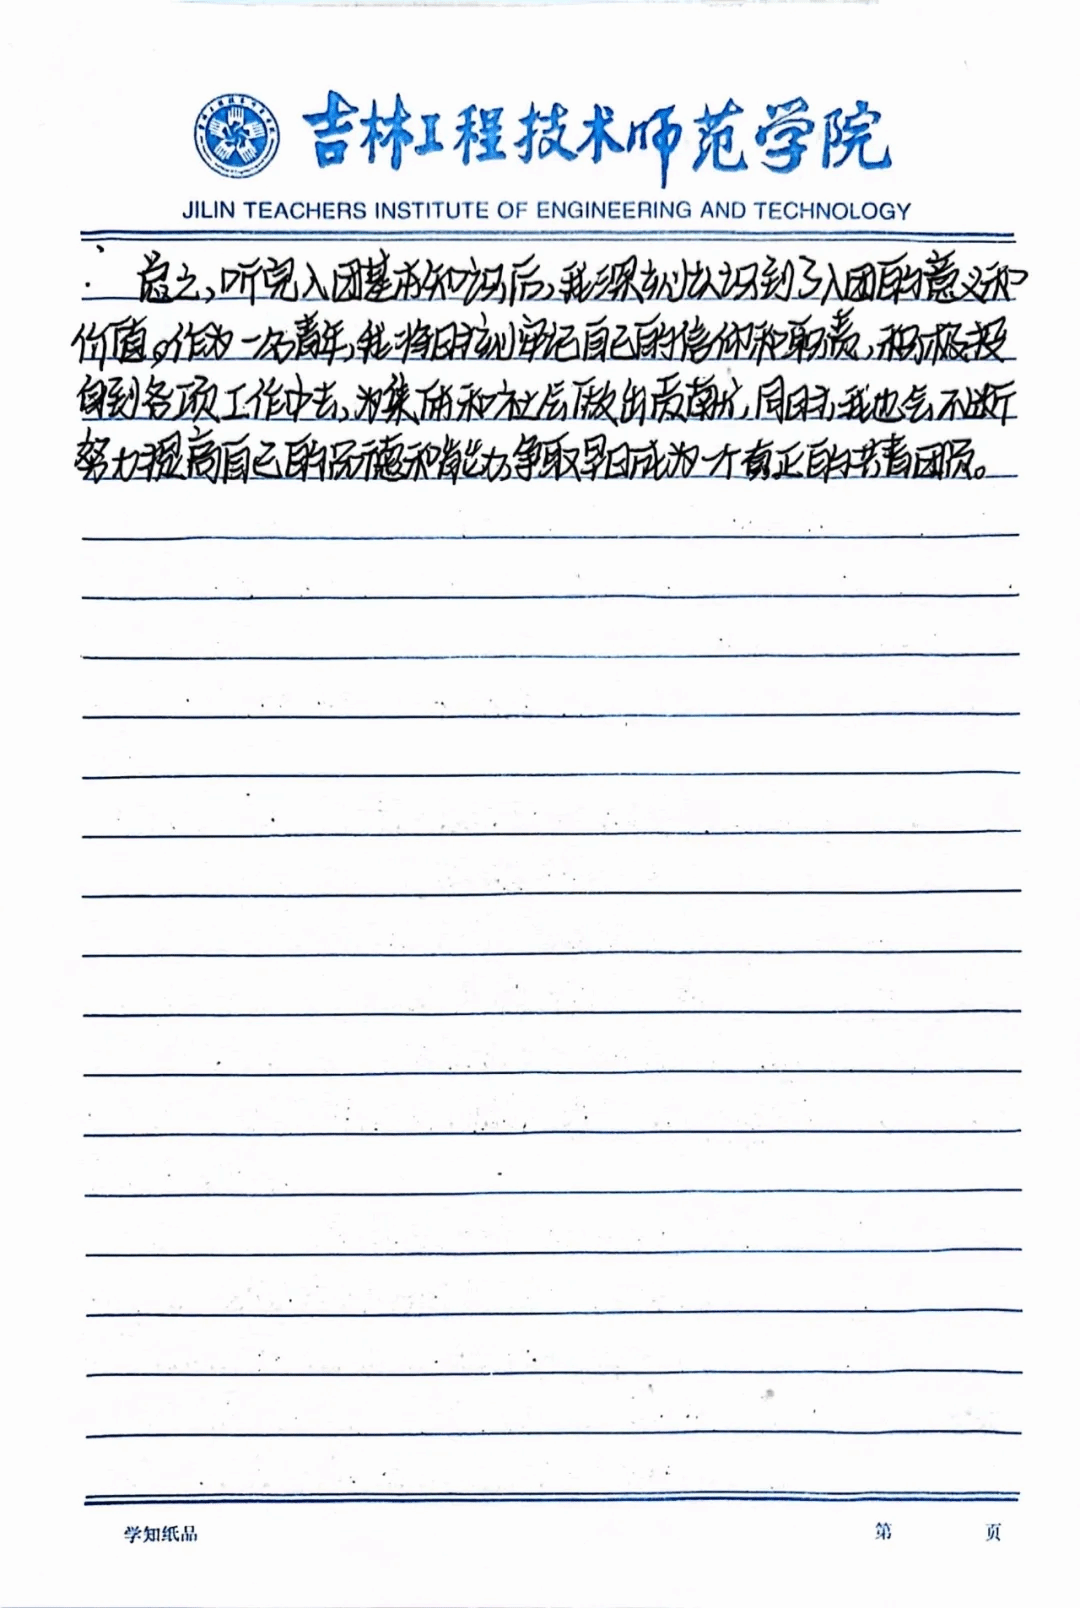 吉林工程技术师范学院
JILIN TEACHERS INSTITUTE OF ENGINEERING AND TECHNOLOGY
总之,听完入团基本知识后,我深刻认识到了入团的意义和
价值。作为一名青年,我将时刻牢记自己的信仰和职责,积极投
身到各项工作中去,为集体和社会做出贡献,同时,我也会不断
努力提高自己的品德和能力,争取早日成为一个真正的共青团员。
学知纸品
第 页